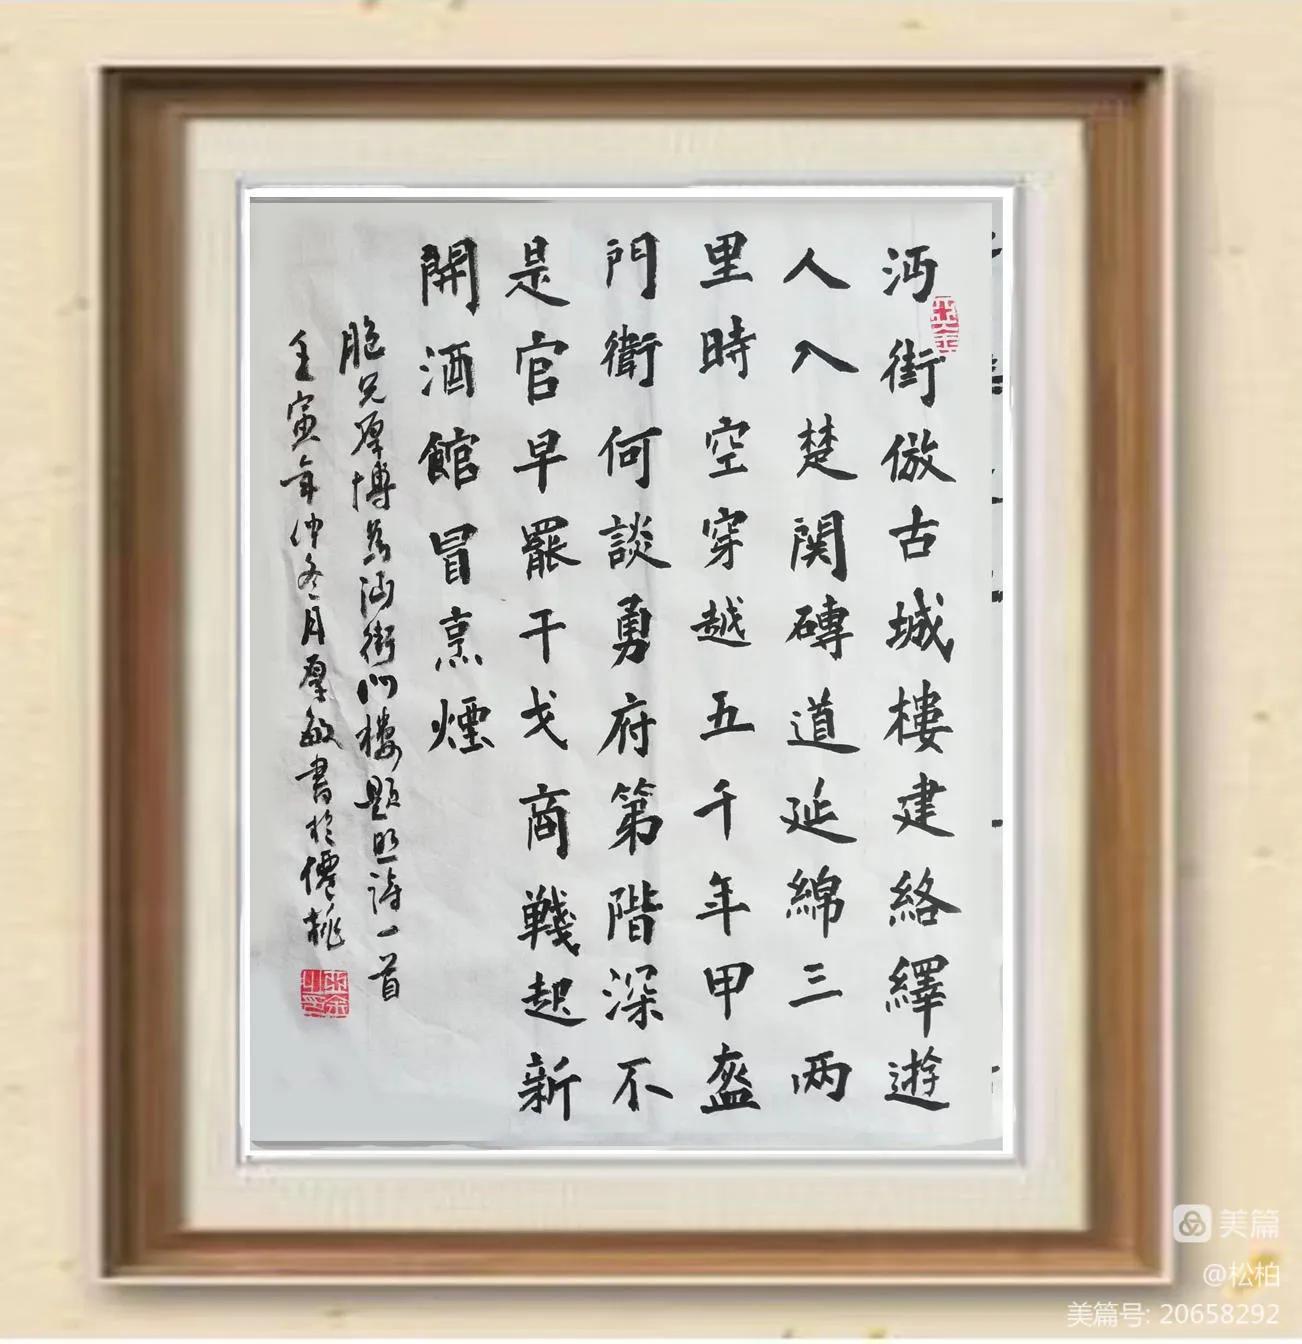 沔街倣古城樓建絡繹遊
人入楚関磚道延綿三两
里時空穿越五千年甲盔
門衛何談勇府第階深不
是官早罷干戈商戰起新
開酒館冒烹煙
胞兄厚博為沔街門樓題照詩一首
壬寅年仲冬月厚敏書於僊桃
美篇
@松柏
美篇号: 20658292